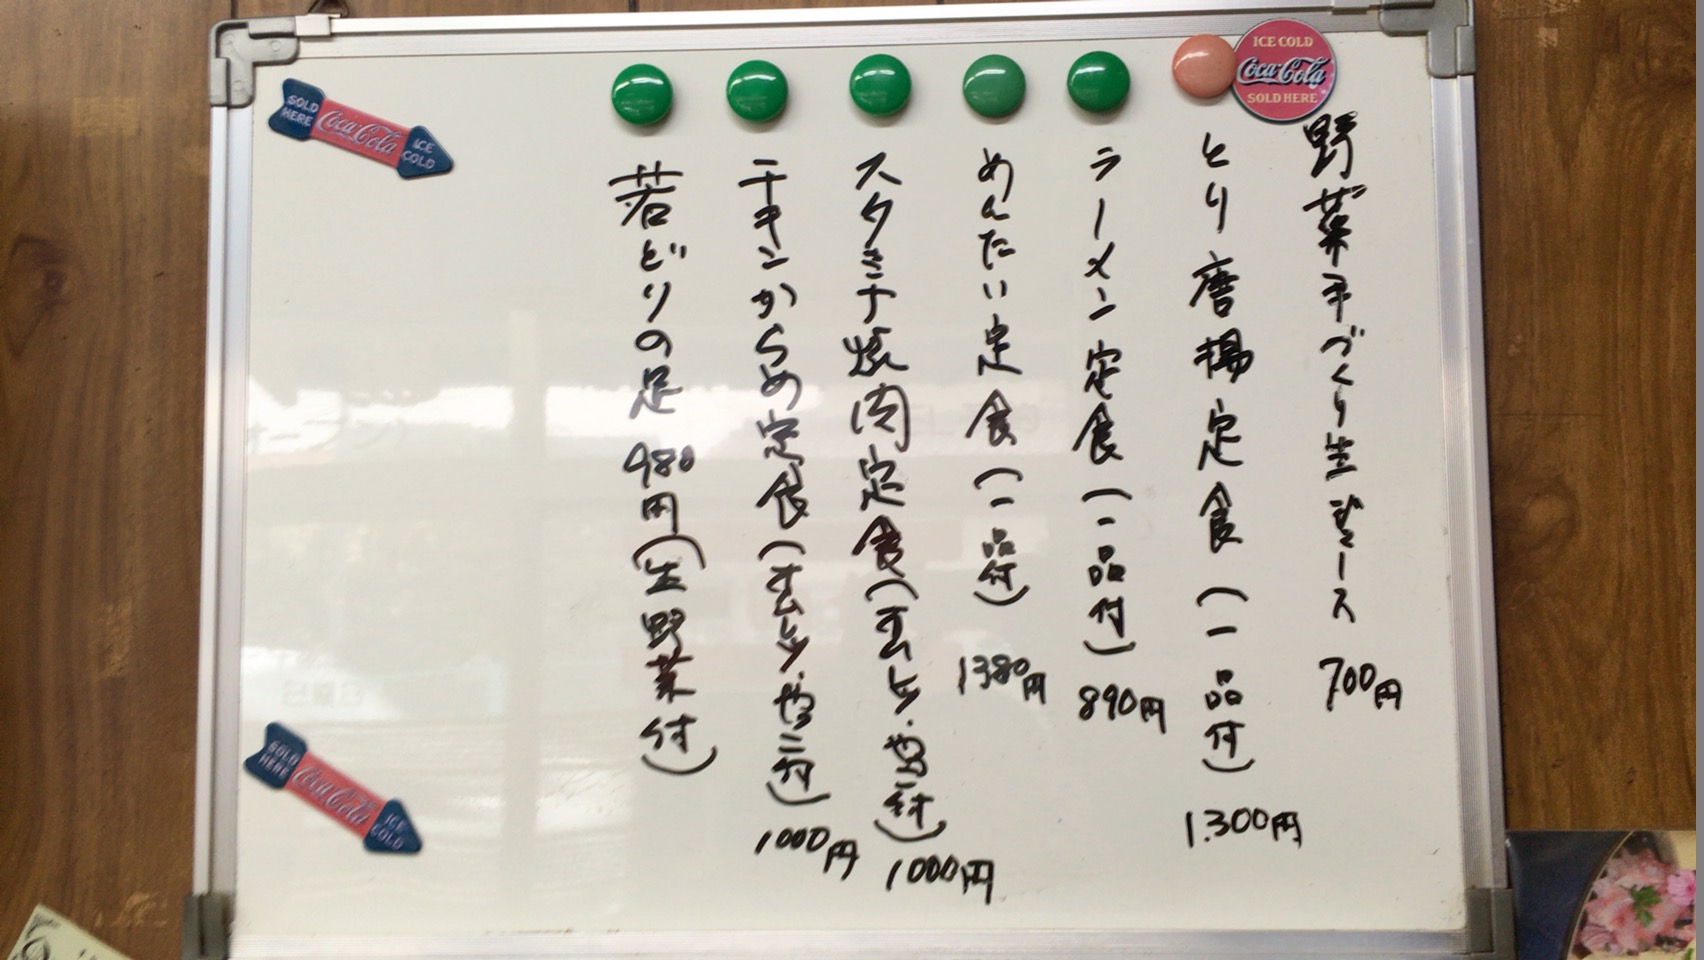 野菜手づくり生ジュース 700円
とり唐揚定食(一品付) 1.300円
ラーメン定食(一品付) 890円
めんたい定食(一品付) 1380円
スタミナ焼肉定食(オムレツ・付) 1000円
チキンからめ定食(オムレツ・付) 1000円
若どりの足 980円(生野菜付)
ICE COLD
Coca-Cola
SOLD HERE
SOLD HERE
Coca-Cola
ICE COLD
SOLD HERE
Coca-Cola
ICE COLD